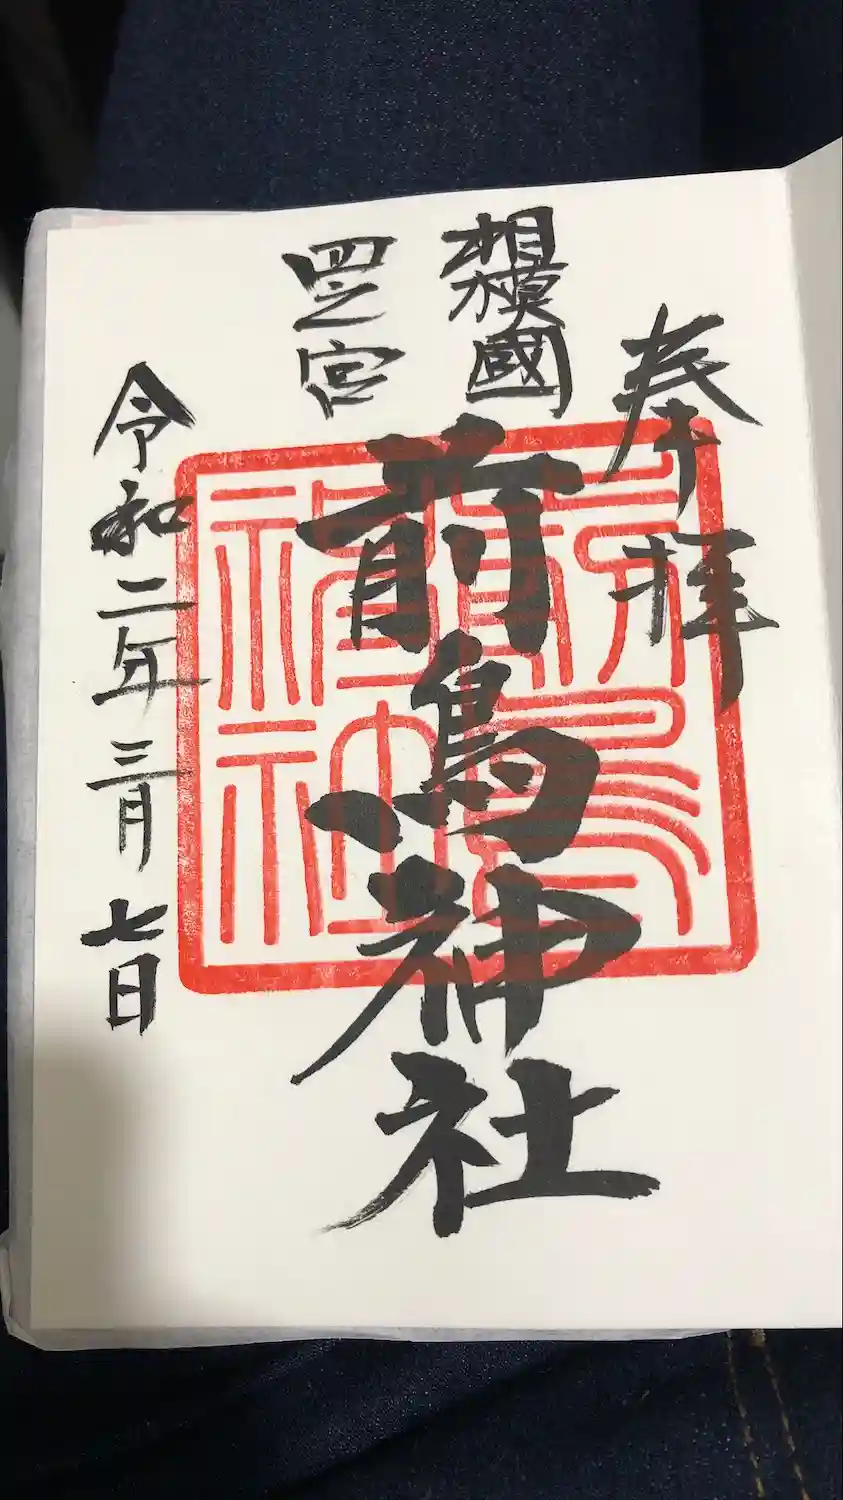 奉拝
相模國
四之宮
前鳥神社
令和二年三月七日